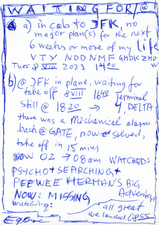 WAITING FOR/@
a) in cab to JFK, no
major plan(s) for the next
6 weeks or more of my life
VTY NDD NMF GMBK
Tues 8 VIII 2023
b) @ JFK in plane, waiting for
take off 8 VIII 1645
Terminal
still @ 1820 → 4 DELTA
there was a Mechanical alarm
back @ GATE, now solved,
take off in 15 mins
NOW 02 → 08am WATCHED:
PSYCHO + SEARCHING +
PEEWEE HERMAN'S BIG
Adventure
NOW: MISSING
watching:
all great
we landed